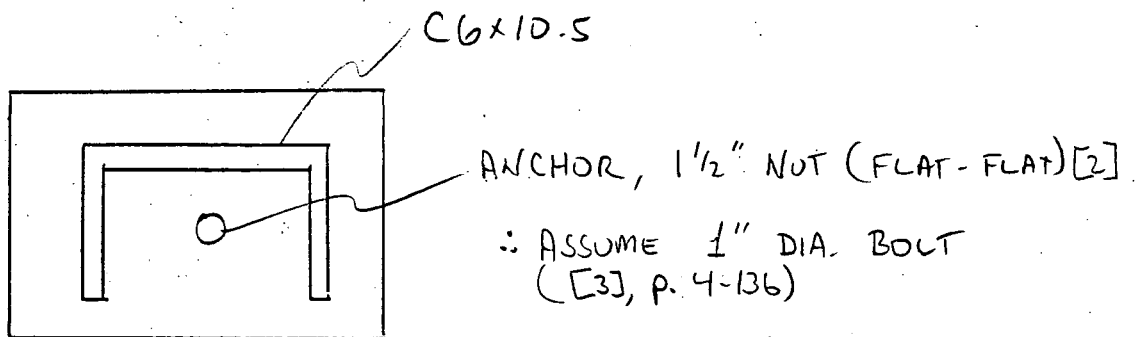 C6x10.5
ANCHOR, 1 1/2" NUT (FLAT-FLAT)[2]
∴ ASSUME 1" DIA. BOLT
([3], p. 4-136)